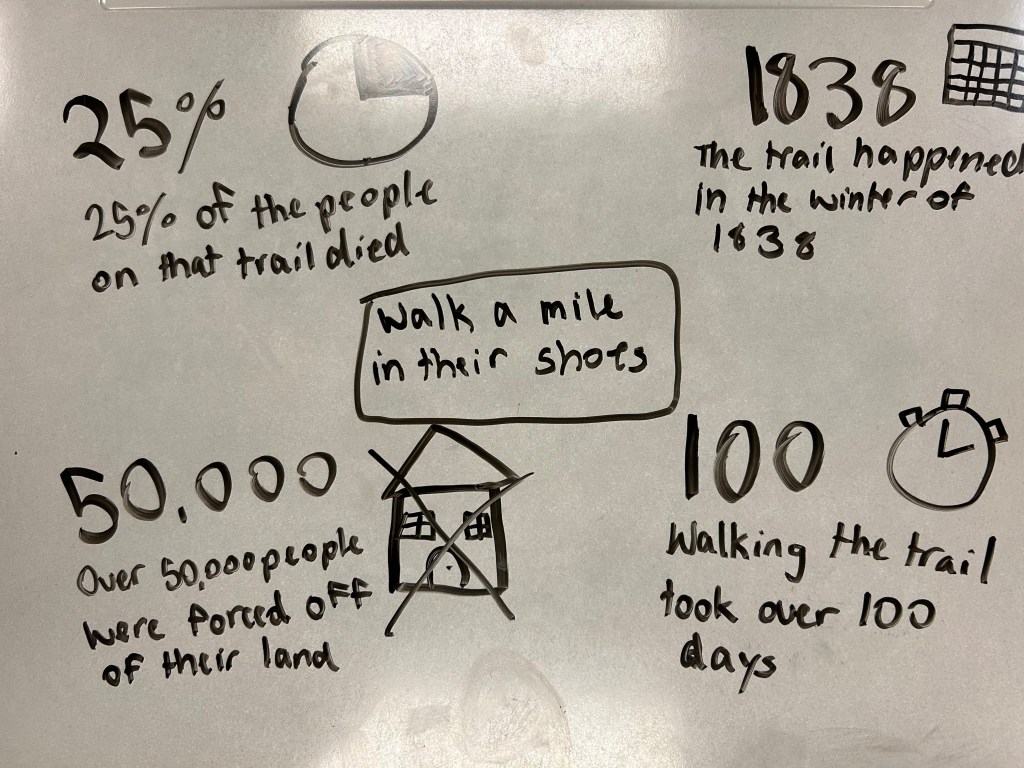 25%
25% of the people
on that trail died
1838
The trail happened
in the winter of
1838
Walk a mile
in their shoes
50,000
Over 50,000 people
were forced off
of their land
100
Walking the trail
took over 100
days